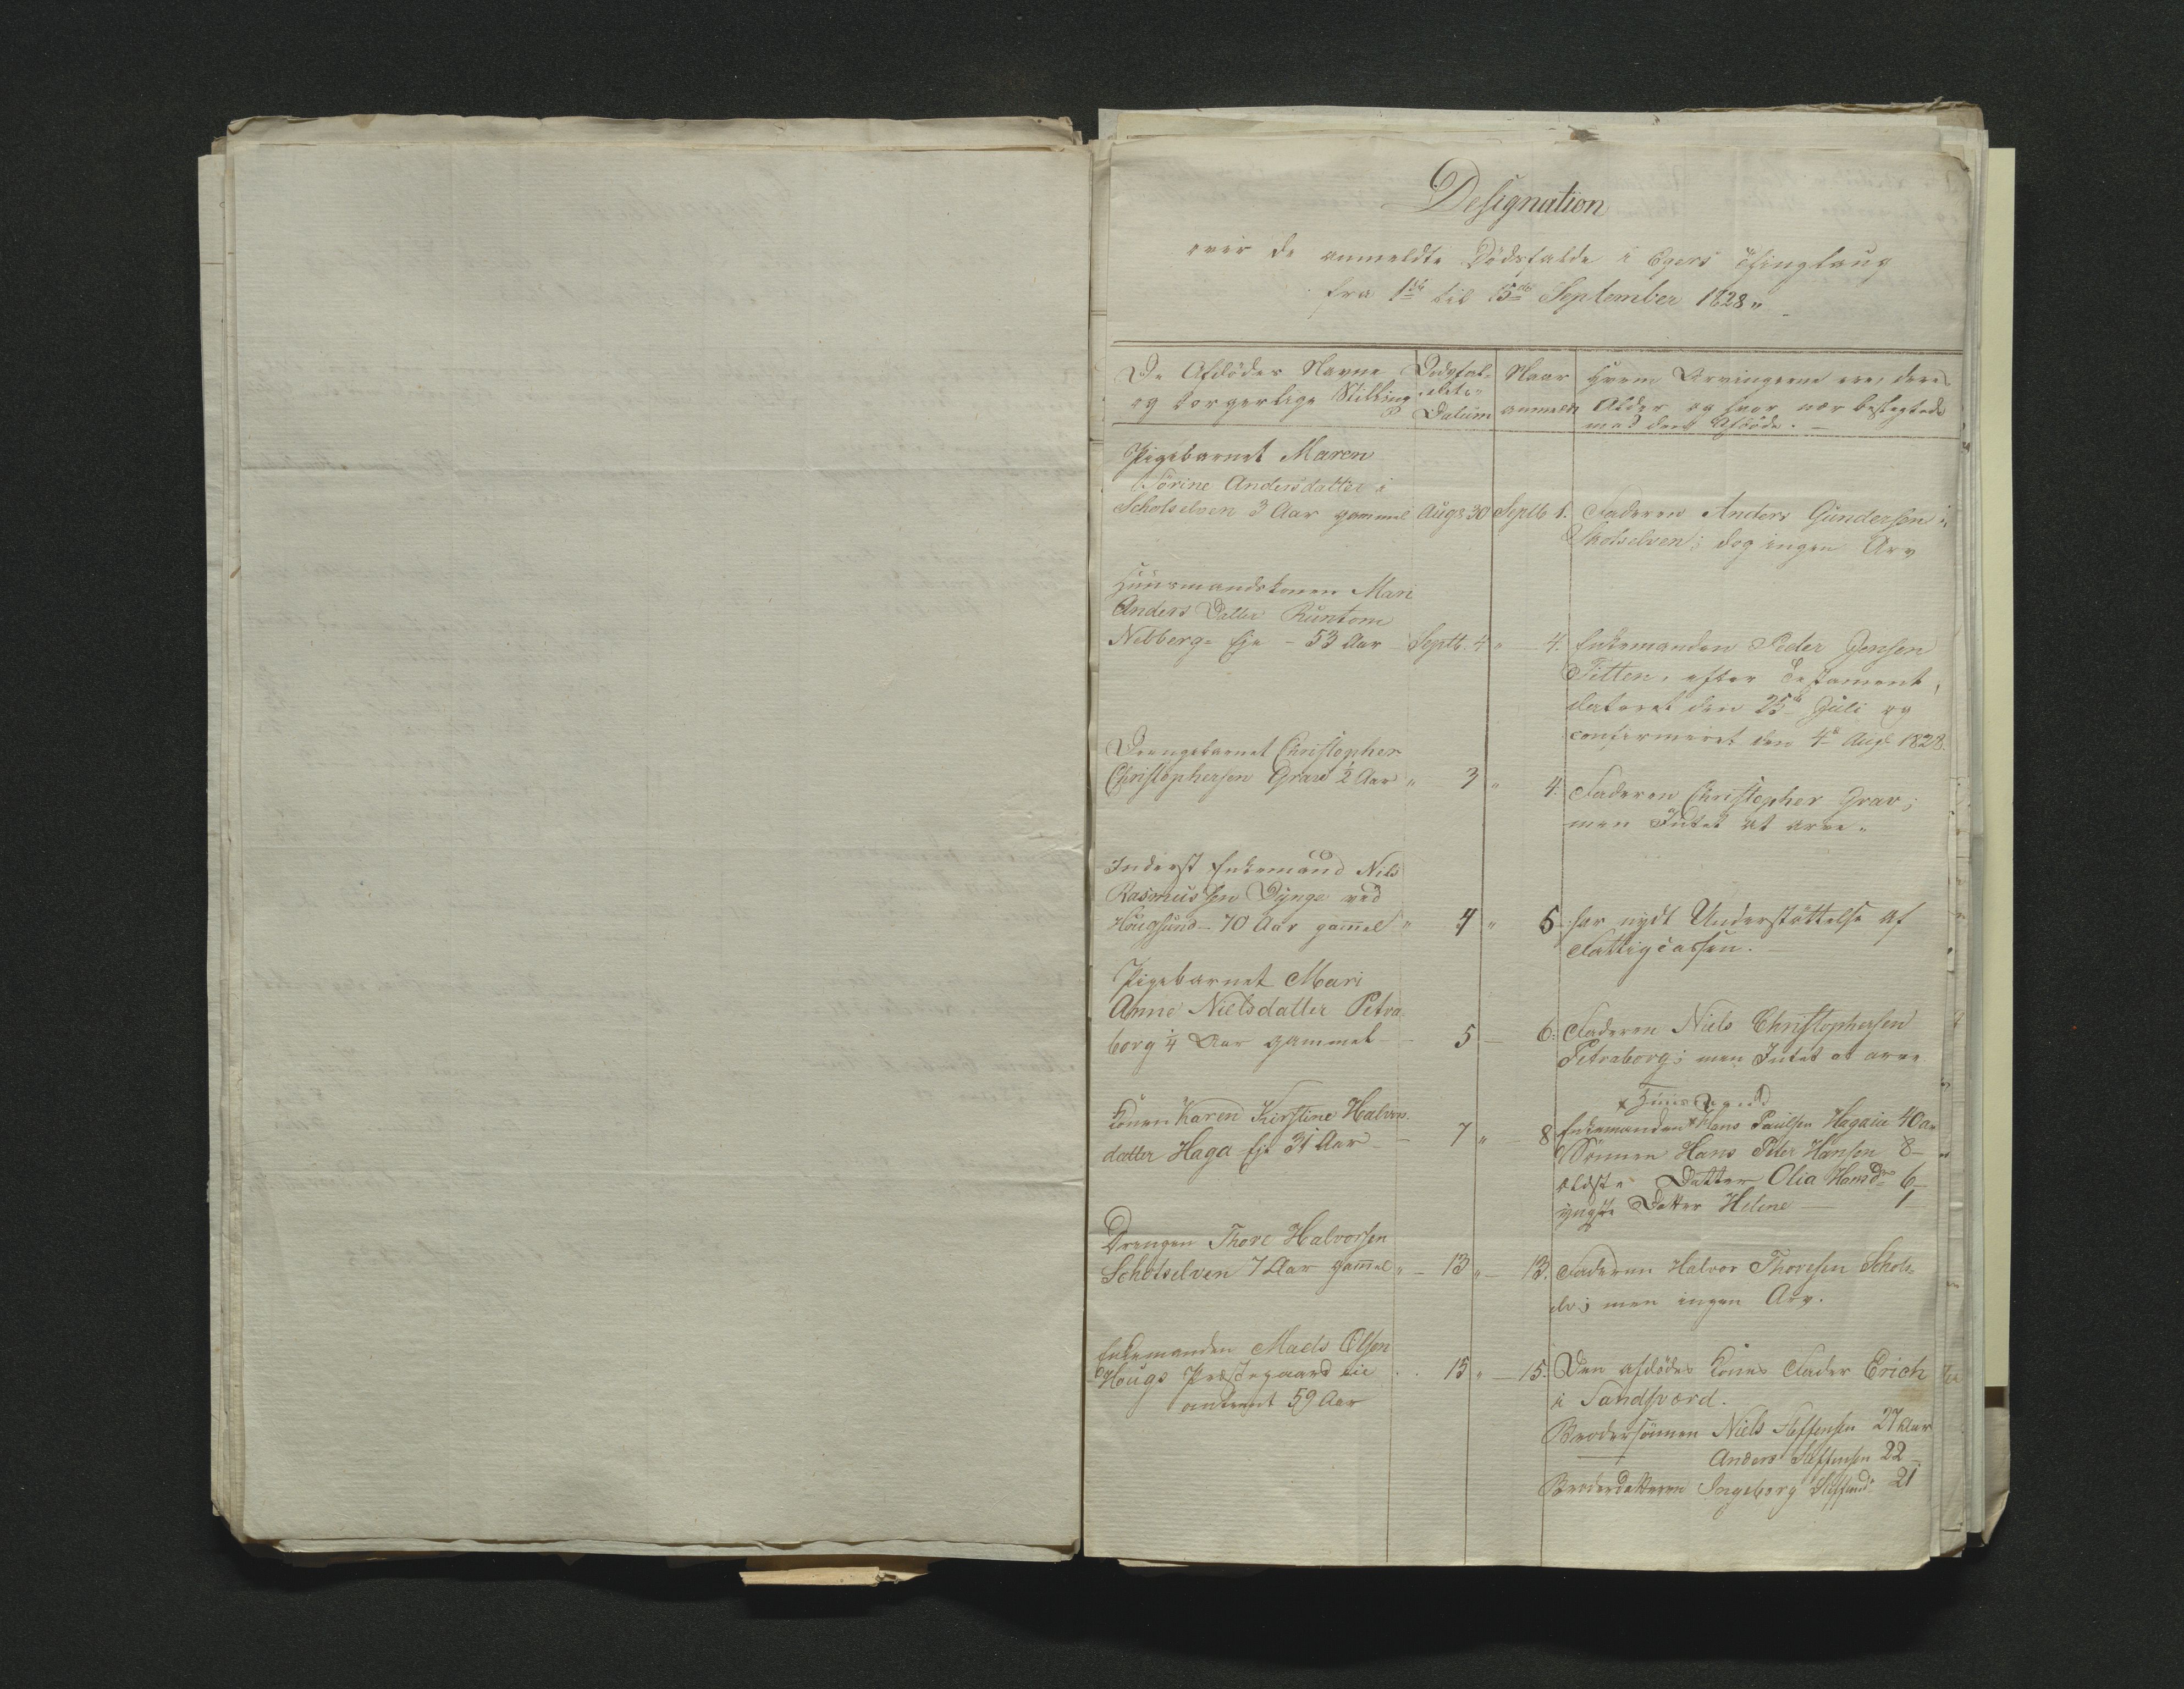 Designation
over de anmeldte Dödsfalde i Egers Thinglaug
fra 1ste til 15de September 1828"
De Afdödes Navne
og borgerlige Stilling
Dödsfal-
dets
Datum
Naar
anmeldt
Hvem Arvingerne ere, deres
Alder og hvor nær beslegtede
med den Afdöde.
Pigebarnet Maren
Sörine Andersdatter i
Schotselven 3 Aar gammel Aug. 30 Septb 1. Faderen Anders Gundersen i
Skotselven; dog ingen Arv
Huusmandskonen Mari
Anders Datter Runtom
Nebberg- Eje - 53 Aar Septb. 4 " 4. Enkemanden Peder Jensen
Titten, efter Testament,
dateret den 25de Juli og
confirmeret den 4de Augt 1828.
Drengebarnet Christopher
Christophersen Grav 1/2 Aar " 3 " 4. Faderen Christopher Grav;
men Intet at arve.
Inderst Enkemand Nils
Rasmussen Dynge ved
Hougsund - 70 Aar gam̅el " 4 " 5 har nydt Understöttelse af
Fattigcassen.
Pigebarnet Mari
Anne Nielsdatter Petra
borg 1/4 Aar gammel - 5 - 6. Faderen Niels Christophersen
Petraborg; men Intet at arve
x Huusmand
Konen Karen Kirstine Halvors
datter Haga Eje 31 Aar - 7 " 8 Enkemanden x Hans Paulsen Hagaeie 40 Aar
Sönnen Hans Peter Hansen 8 -
ældste Datter Olia Hansd. 6 -
yngste Datter Helene - 1
Drengen Thore Halvorsen
Schotselven 7 Aar gam̅el " - 13 " - 13. Faderen Halvor Thoresen Schots-
elv; men ingen Arv.
Enkemanden Mads Olsen
Hougs Præstegaard eie . . 15 " - 15. Den afdödes Kones Fader Erich
omtrent 59 Aar
i Sandsværd.
Brodersönnen Niels Steffensen 27 Aar
Anders Steffensen 22 -
Broderdatteren Ingeborg Steffensd. 21